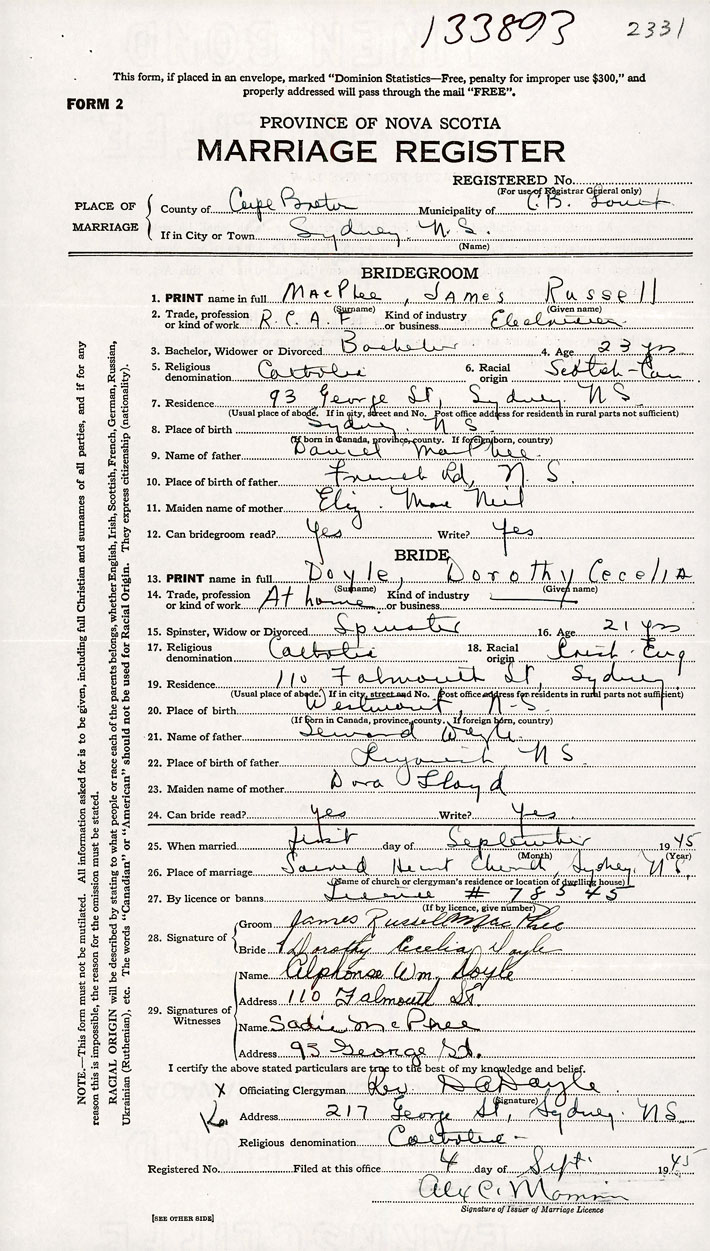 133893 2331
This form, if placed in an envelope, marked “Dominion Statistics—Free, penalty for improper use $300,” and
properly addressed will pass through the mail “FREE”.
FORM 2
PROVINCE OF NOVA SCOTIA
MARRIAGE REGISTER
REGISTERED No.
(For use of Registrar General only)
PLACE OF MARRIAGE
County of Cape Breton Municipality of C.B. South
If in City or Town Sydney N.S.
(Name)
BRIDEGROOM
1. PRINT name in full MacPhee, James Russell
(Surname) (Given name)
2. Trade, profession or kind of work R.C.A.F. Kind of industry or business
3. Bachelor, Widower or Divorced Bachelor 4. Age 23 yrs
5. Religious denomination Catholic 6. Racial origin Scotish-Can
7. Residence 93 George St, Sydney NS
(Usual place of abode. If in city, street and No. Post office address for residents in rural parts not sufficient)
8. Place of birth Sydney N S
(If born in Canada, province, county. If foreign born, country)
9. Name of father Daniel MacPhee
10. Place of birth of father French Rd, N.S.
11. Maiden name of mother Eliz. Mac Neil
12. Can bridegroom read? Yes Write? Yes
BRIDE
13. PRINT name in full Doyle, Dorothy Cecelia
(Surname) (Given name)
14. Trade, profession or kind of work At home Kind of industry or business
15. Spinster, Widow or Divorced Spinster 16. Age 21 yrs
17. Religious denomination Catholic 18. Racial origin Irish-Eng
19. Residence 110 Falmouth St, Sydney
(Usual place of abode. If in city, street and No. Post office address for residents in rural parts not sufficient)
20. Place of birth Westmount, N-S.
(If born in Canada, province, county. If foreign born, country)
21. Name of father Doyle
22. Place of birth of father N S.
23. Maiden name of mother Dora Lloyd
24. Can bride read? Yes Write? Yes
25. When married first day of September 1945
(Month) (Year)
26. Place of marriage Sacred Heart Church, Sydney N S.
(Name of church or clergyman's residence or location of dwelling house)
27. By licence or banns Licence # 78545
(If by licence, give number)
28. Signature of
Groom James Russell MacPhee
Bride Dorothy Cecelia Doyle
29. Signatures of Witnesses
Name Alphonse Wm. Doyle
Address 110 Falmouth St.
Name Sadie McPhee
Address 93 George St.
I certify the above stated particulars are true to the best of my knowledge and belief.
X Officiating Clergyman Rev. Doyle
(Signature)
Address 217 George St, Sydney NS
Religious denomination Catholic -
Registered No. Filed at this office 4 day of Sept. 1945
Alex C.
Signature of Issuer of Marriage Licence
[SEE OTHER SIDE]
NOTE.—This form must not be mutilated. All information asked for is to be given, including full Christian and surnames of all parties, and if for any
reason this is impossible, the reason for the omission must be stated.
RACIAL ORIGIN will be described by stating to what people or race each of the parents belongs, whether English, Irish, Scottish, French, German, Russian,
Ukrainian (Ruthenian), etc. The words “Canadian” or “American” should not be used for Racial Origin. They express citizenship (nationality).